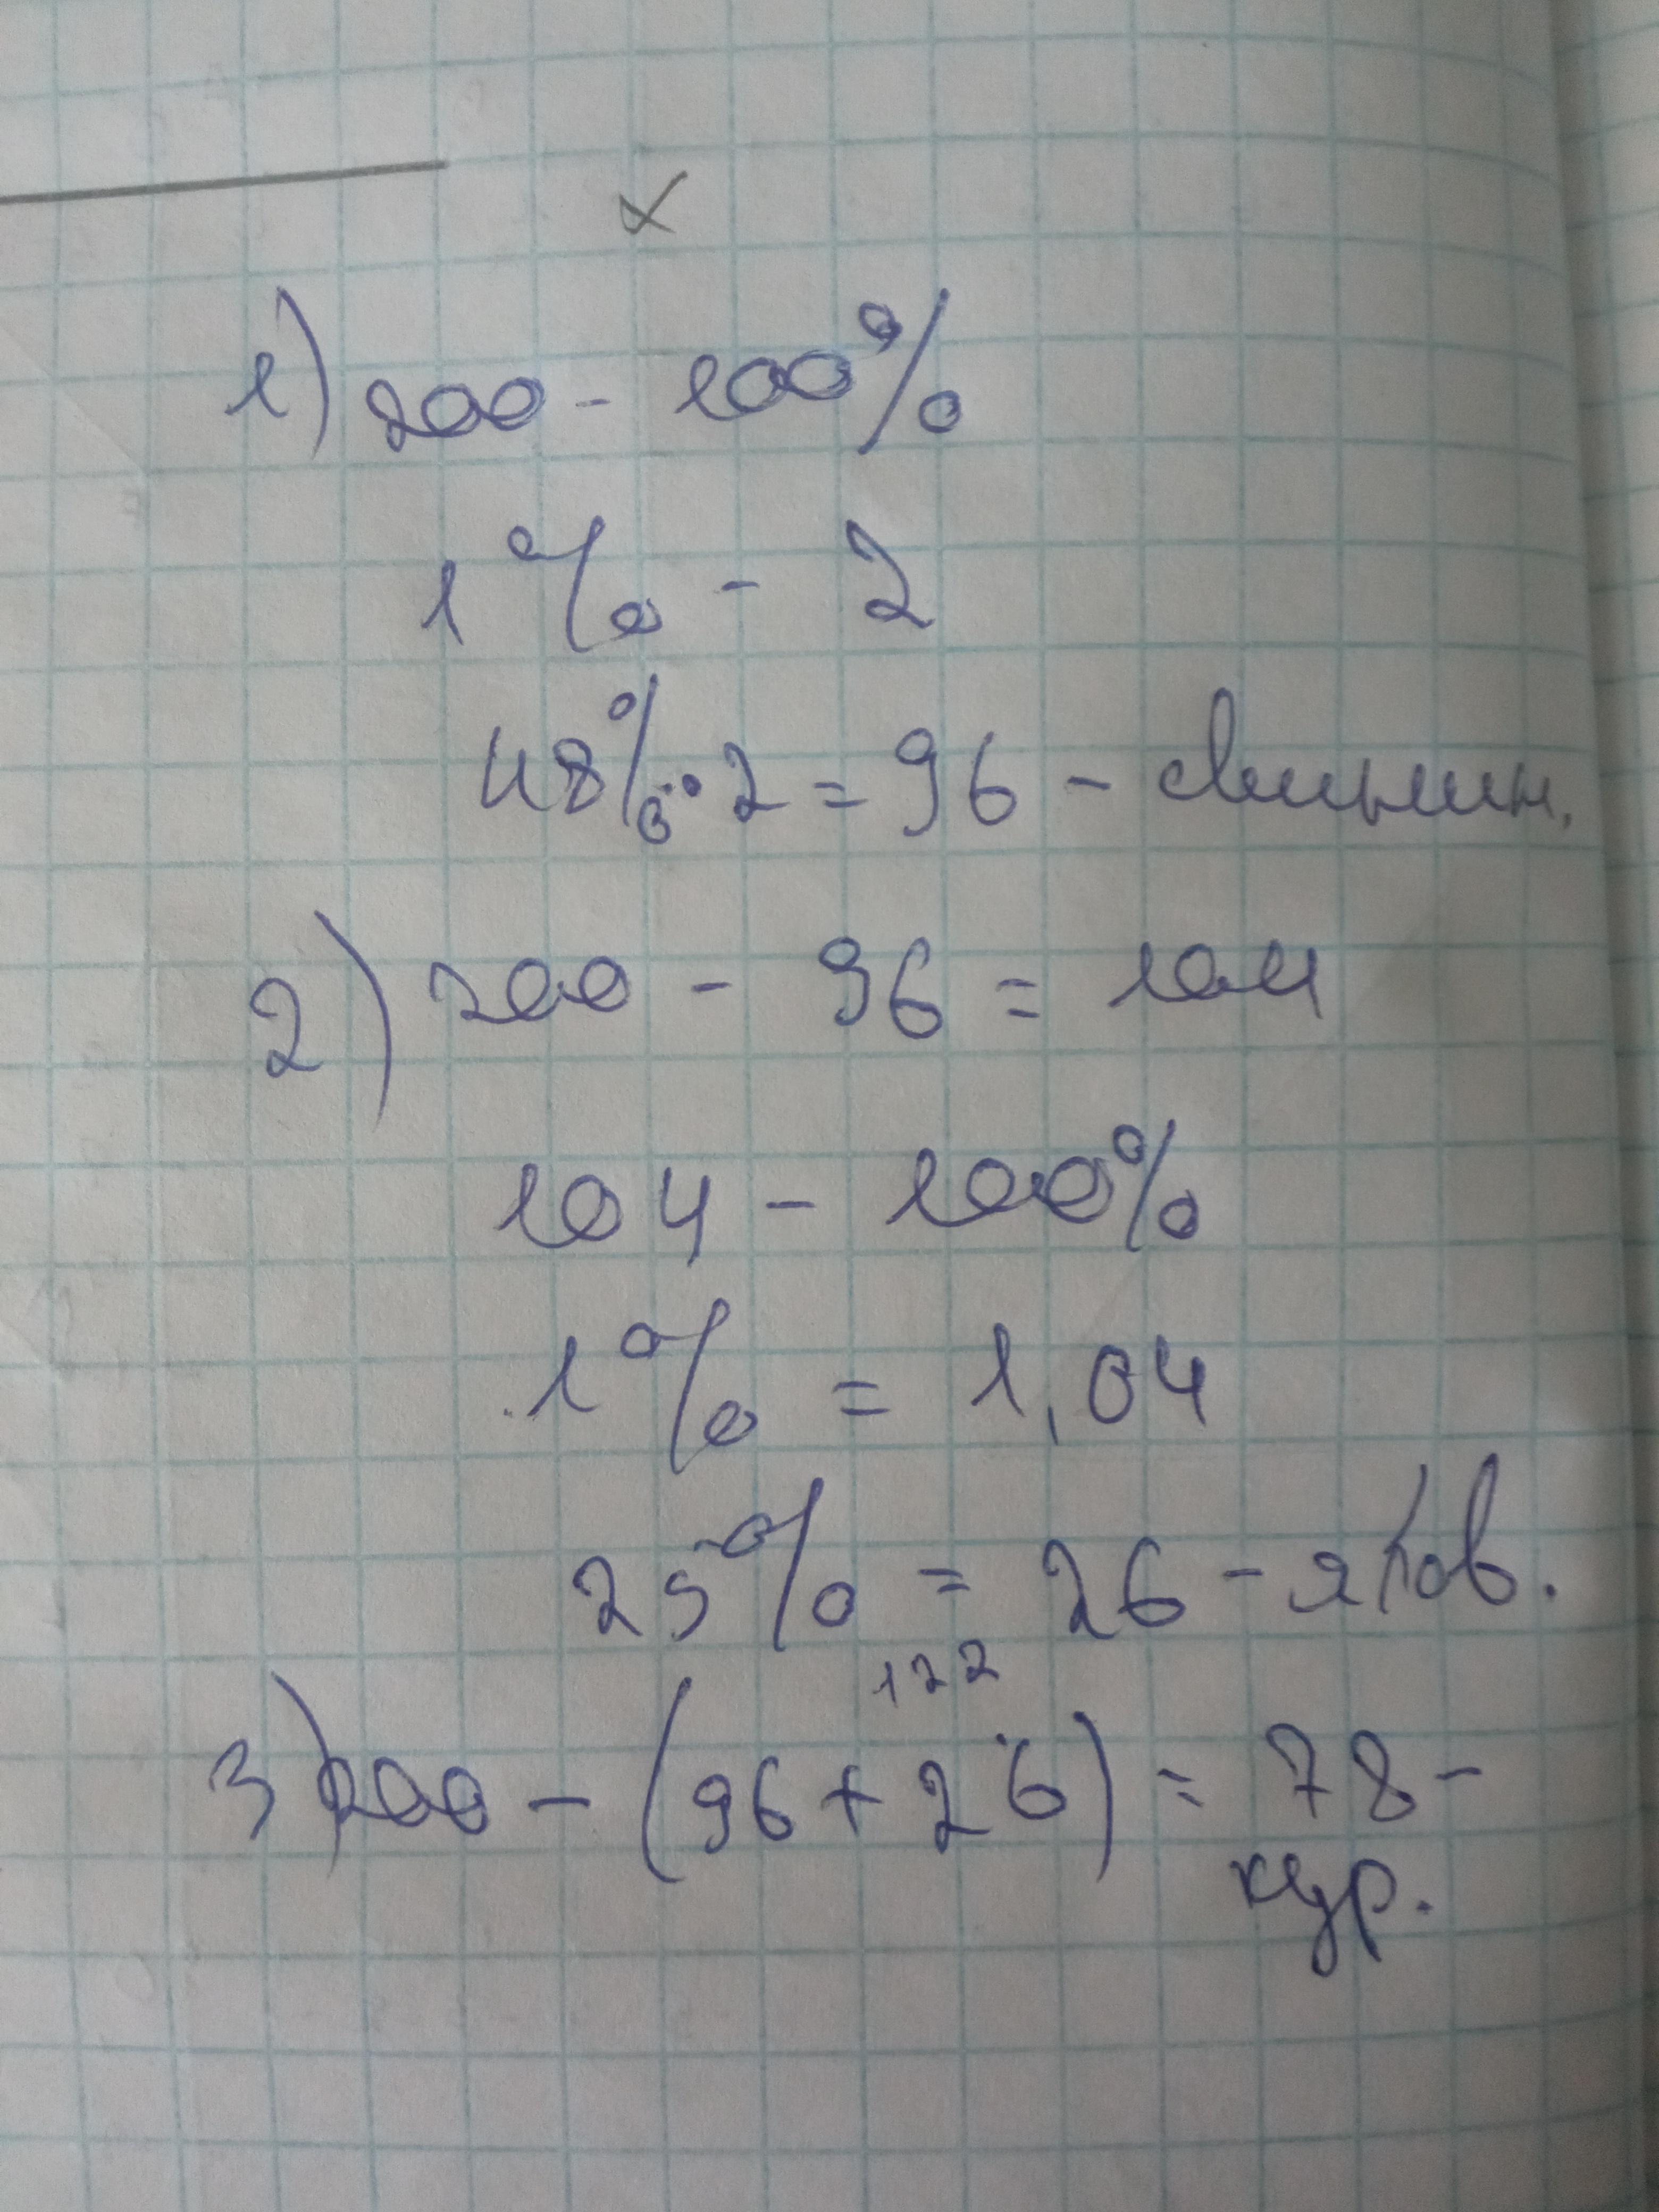 х
1) 200 - 100%
1% - 2
48% · 2 = 96 - свинин.
2) 200 - 96 = 104
104 - 100%
1% = 1,04
25% = 26 - ялов.
122
3) 200 - (96 + 26) = 78 -
кур.